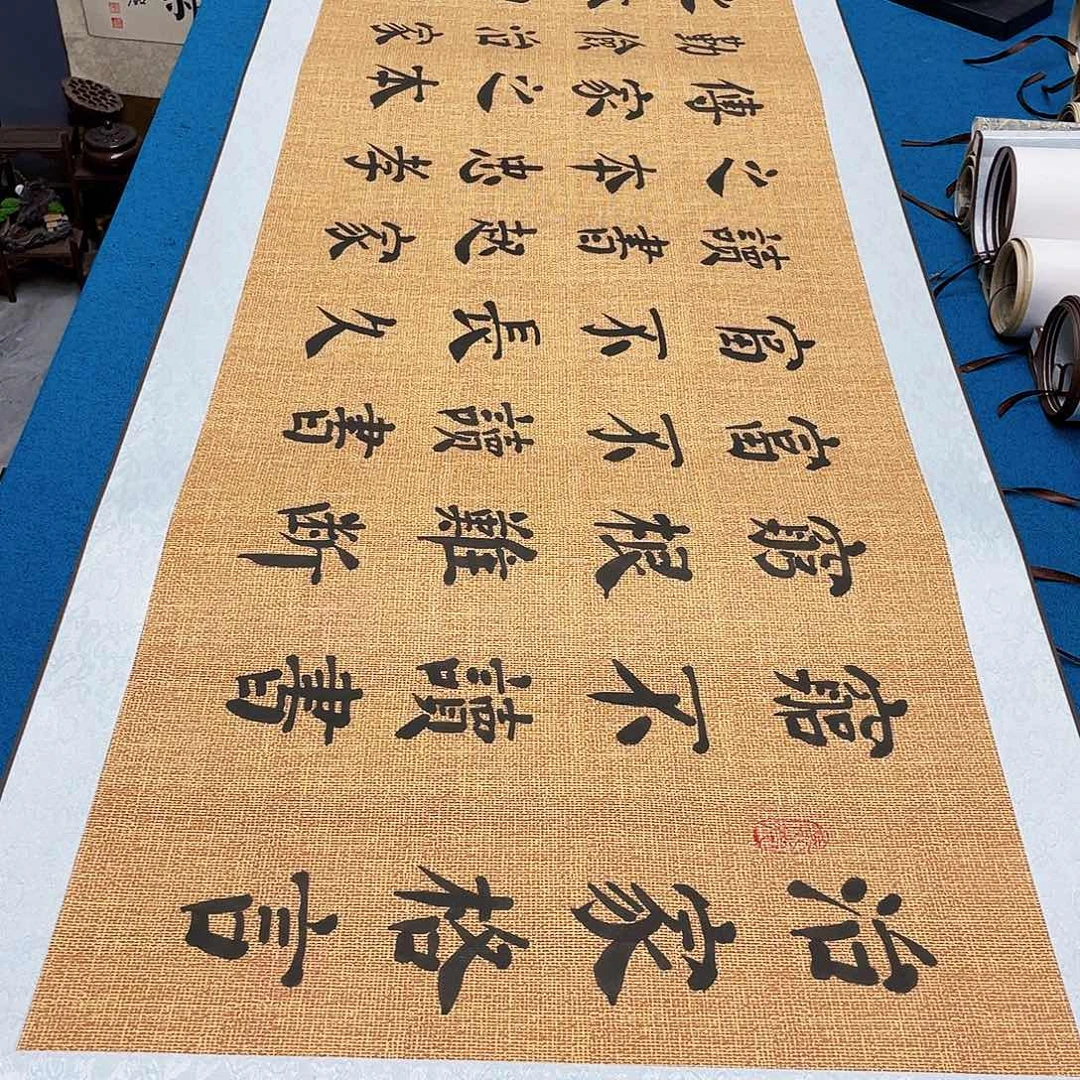 治家格言
窮不讀書
窮根難斷
富不讀書
富不長久
讀書起家
之本忠孝
傳家之本
勤儉治家
之本